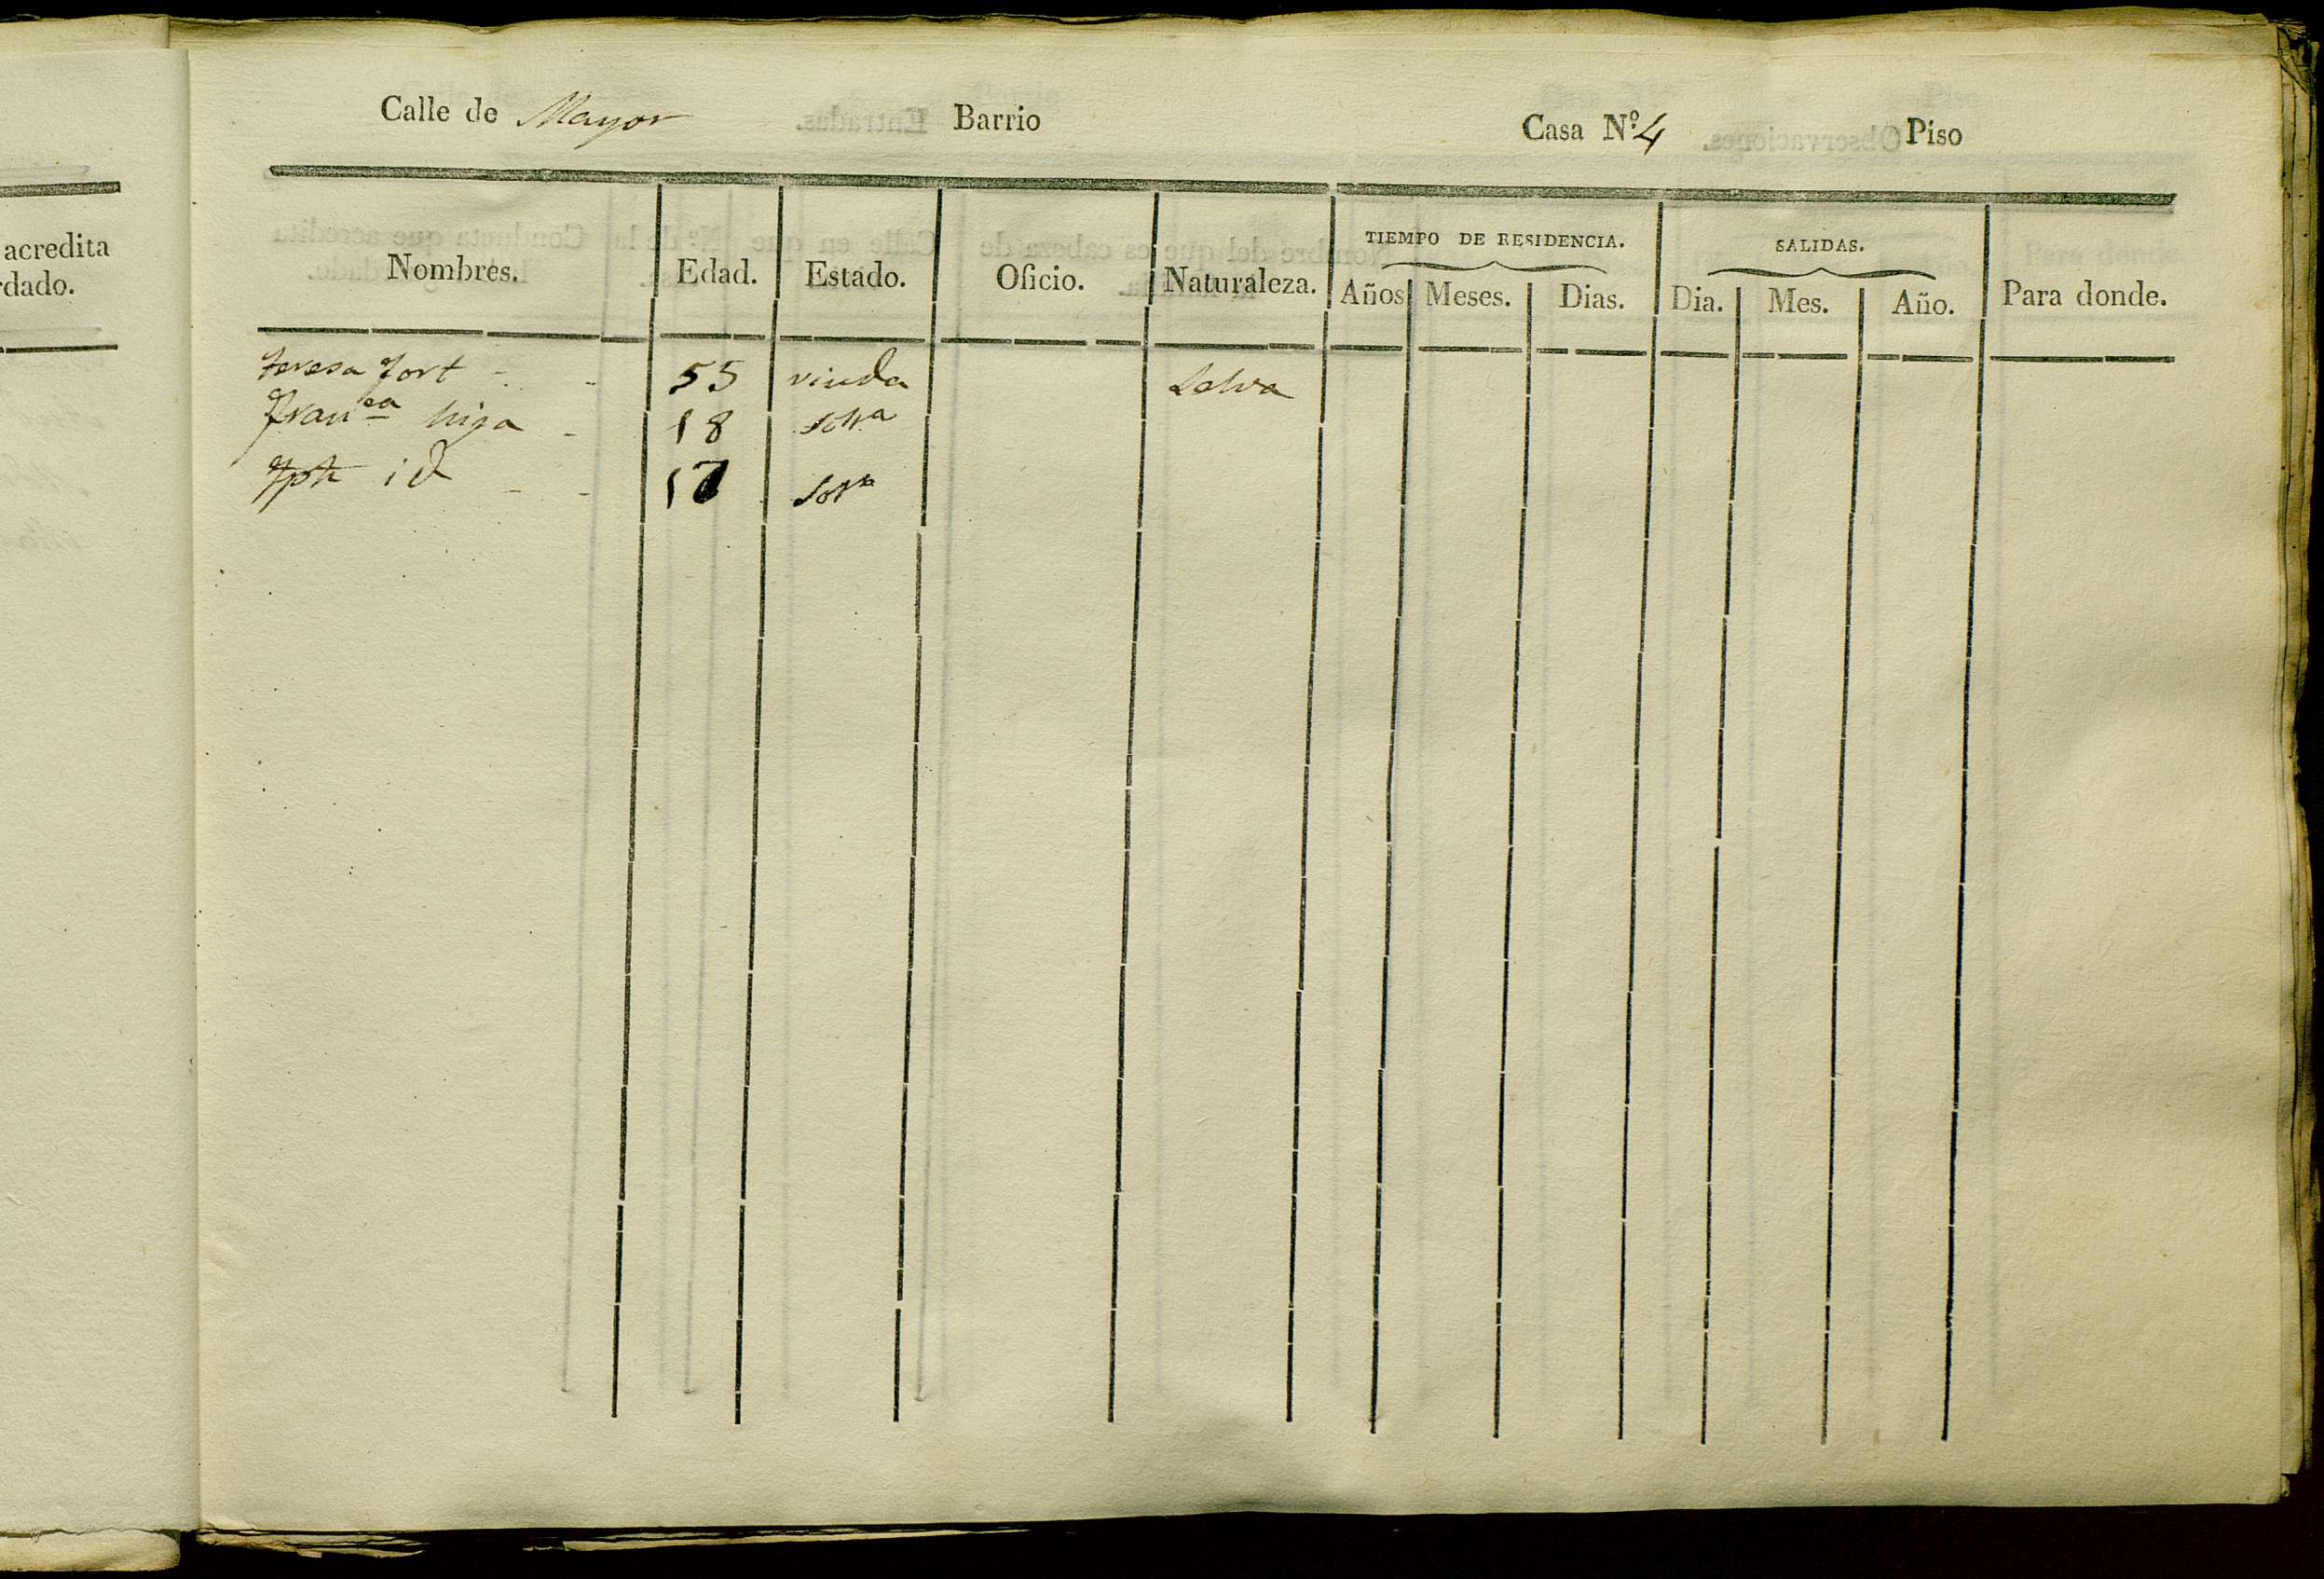 acredita
rdado.
Calle de Mayor Barrio Casa Nº 4 Piso
Nombres. Edad. Estado. Oficio. Naturaleza. TIEMPO DE RESIDENCIA. SALIDAS. Para donde.
Años Meses. Dias. Dia. Mes. Año.
teresa fort 55 viuda Selva
Franca 18 Soltra
id 17 Soltra